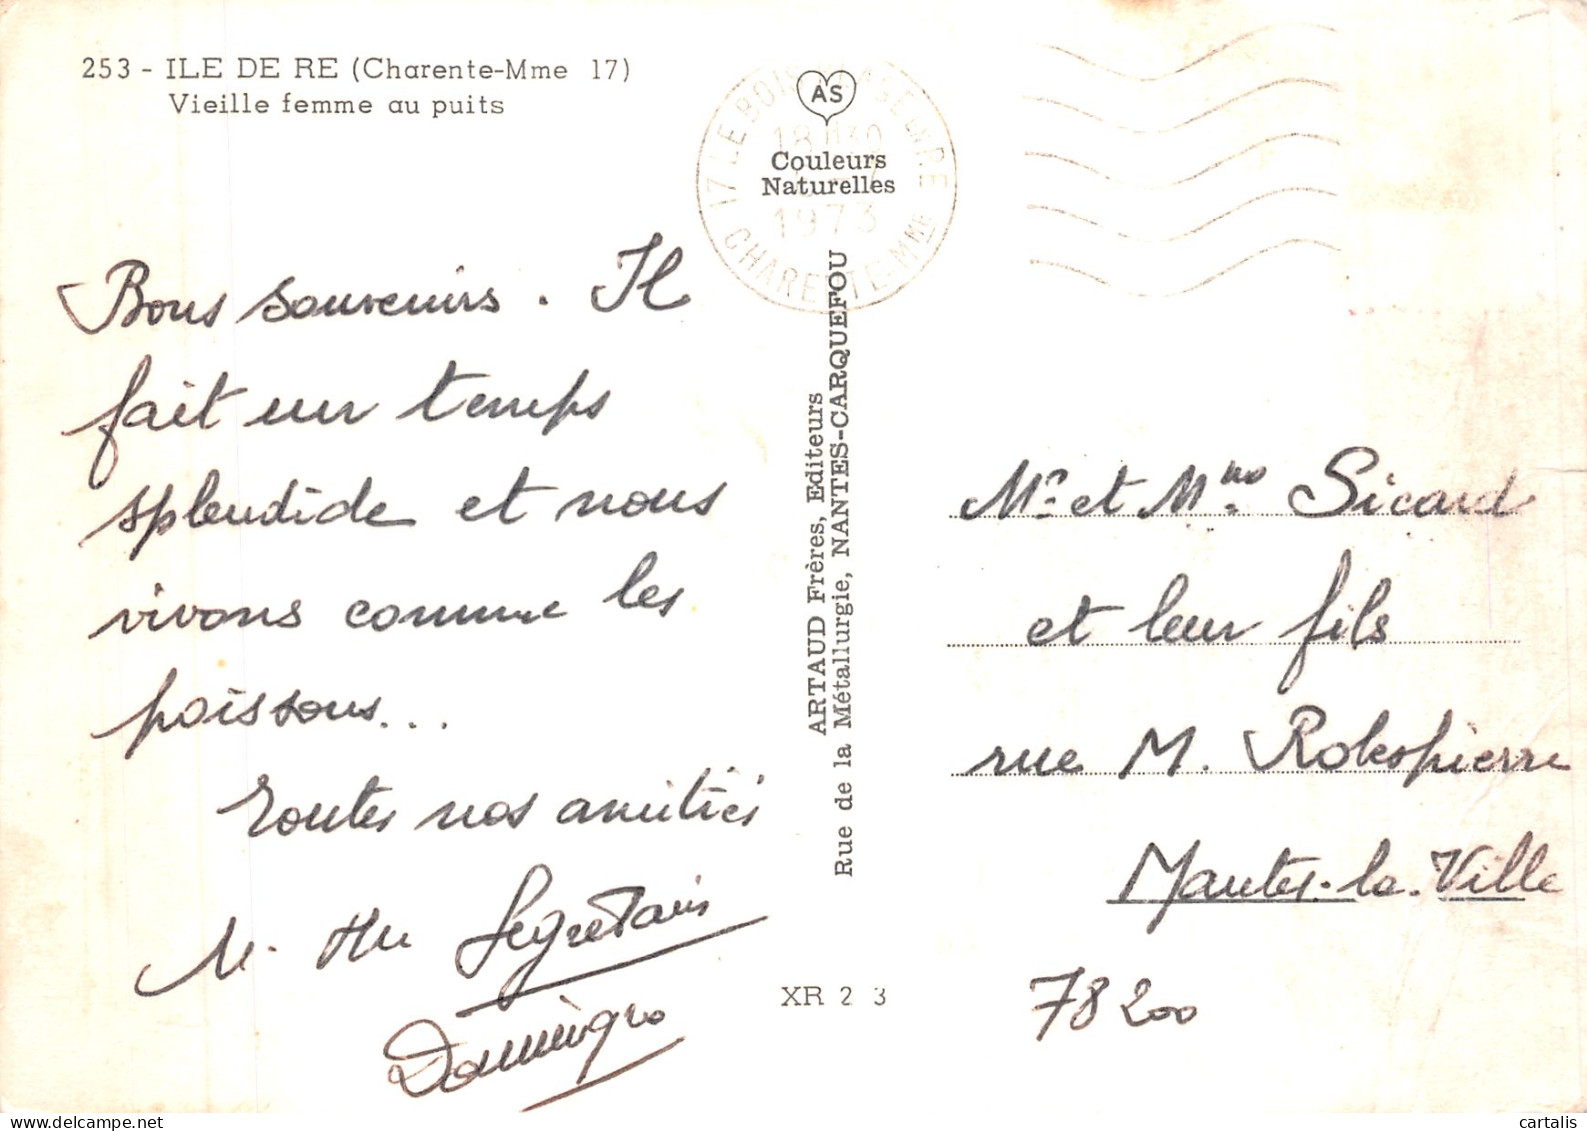 253 - ILE DE RE (Charente-Mme 17)
Vieille femme au puits
Bons souvenirs. Il
fait un temps
splendide et nous
vivons comme les
poissons...
Toutes nos amitiés
M. Segretain
AS
Couleurs
Naturelles
17 LE BOIS PLAGE EN RE
18H30
1973
CHARENTE-MME
ARTAUD Frères, Editeurs
Rue de la Métallurgie, NANTES-CARQUEFOU
XR 2 3
Mr et Mme Sicard
et leur fils
rue M. Robespierre
Mantes-la-Ville
78200
cartalis